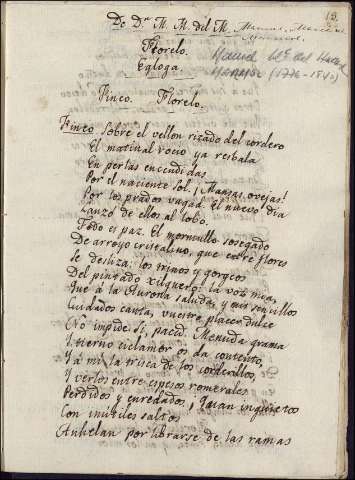 13.
De Dn. M. M. del M.
Manuel Ma. del Mármol
(1776-1840)
Florelo.
Egloga.
Finéo. Florelo.
Finéo Sobre el vellon rizado del cordero
El matinal rocio ya resbala
En perlas encendidas
Por el naciente Sol. ¡Mansas ovejas!
Por los prados vagad. El nuevo dia
Lanzó de ellos al lobo.
Todo es paz. El mormullo sosegado
De arroyo cristalino, que entre flores
Se desliza: los trinos y gorgeos
Del pintado xilguero: la voz mia,
Que á la Aurora saluda, y mis sencillos
Cuidados canta, vuestro placer dulce
No impide. Si, paced. Menuda grama
Y tierno ciclamor os da contento,
Y á mí la trisca de los corderillos,
Y verlos entre espesos romerales
Perdidos y enredados; Qual inquietos
Con inútiles saltos
Anhelan por librarse de las ramas